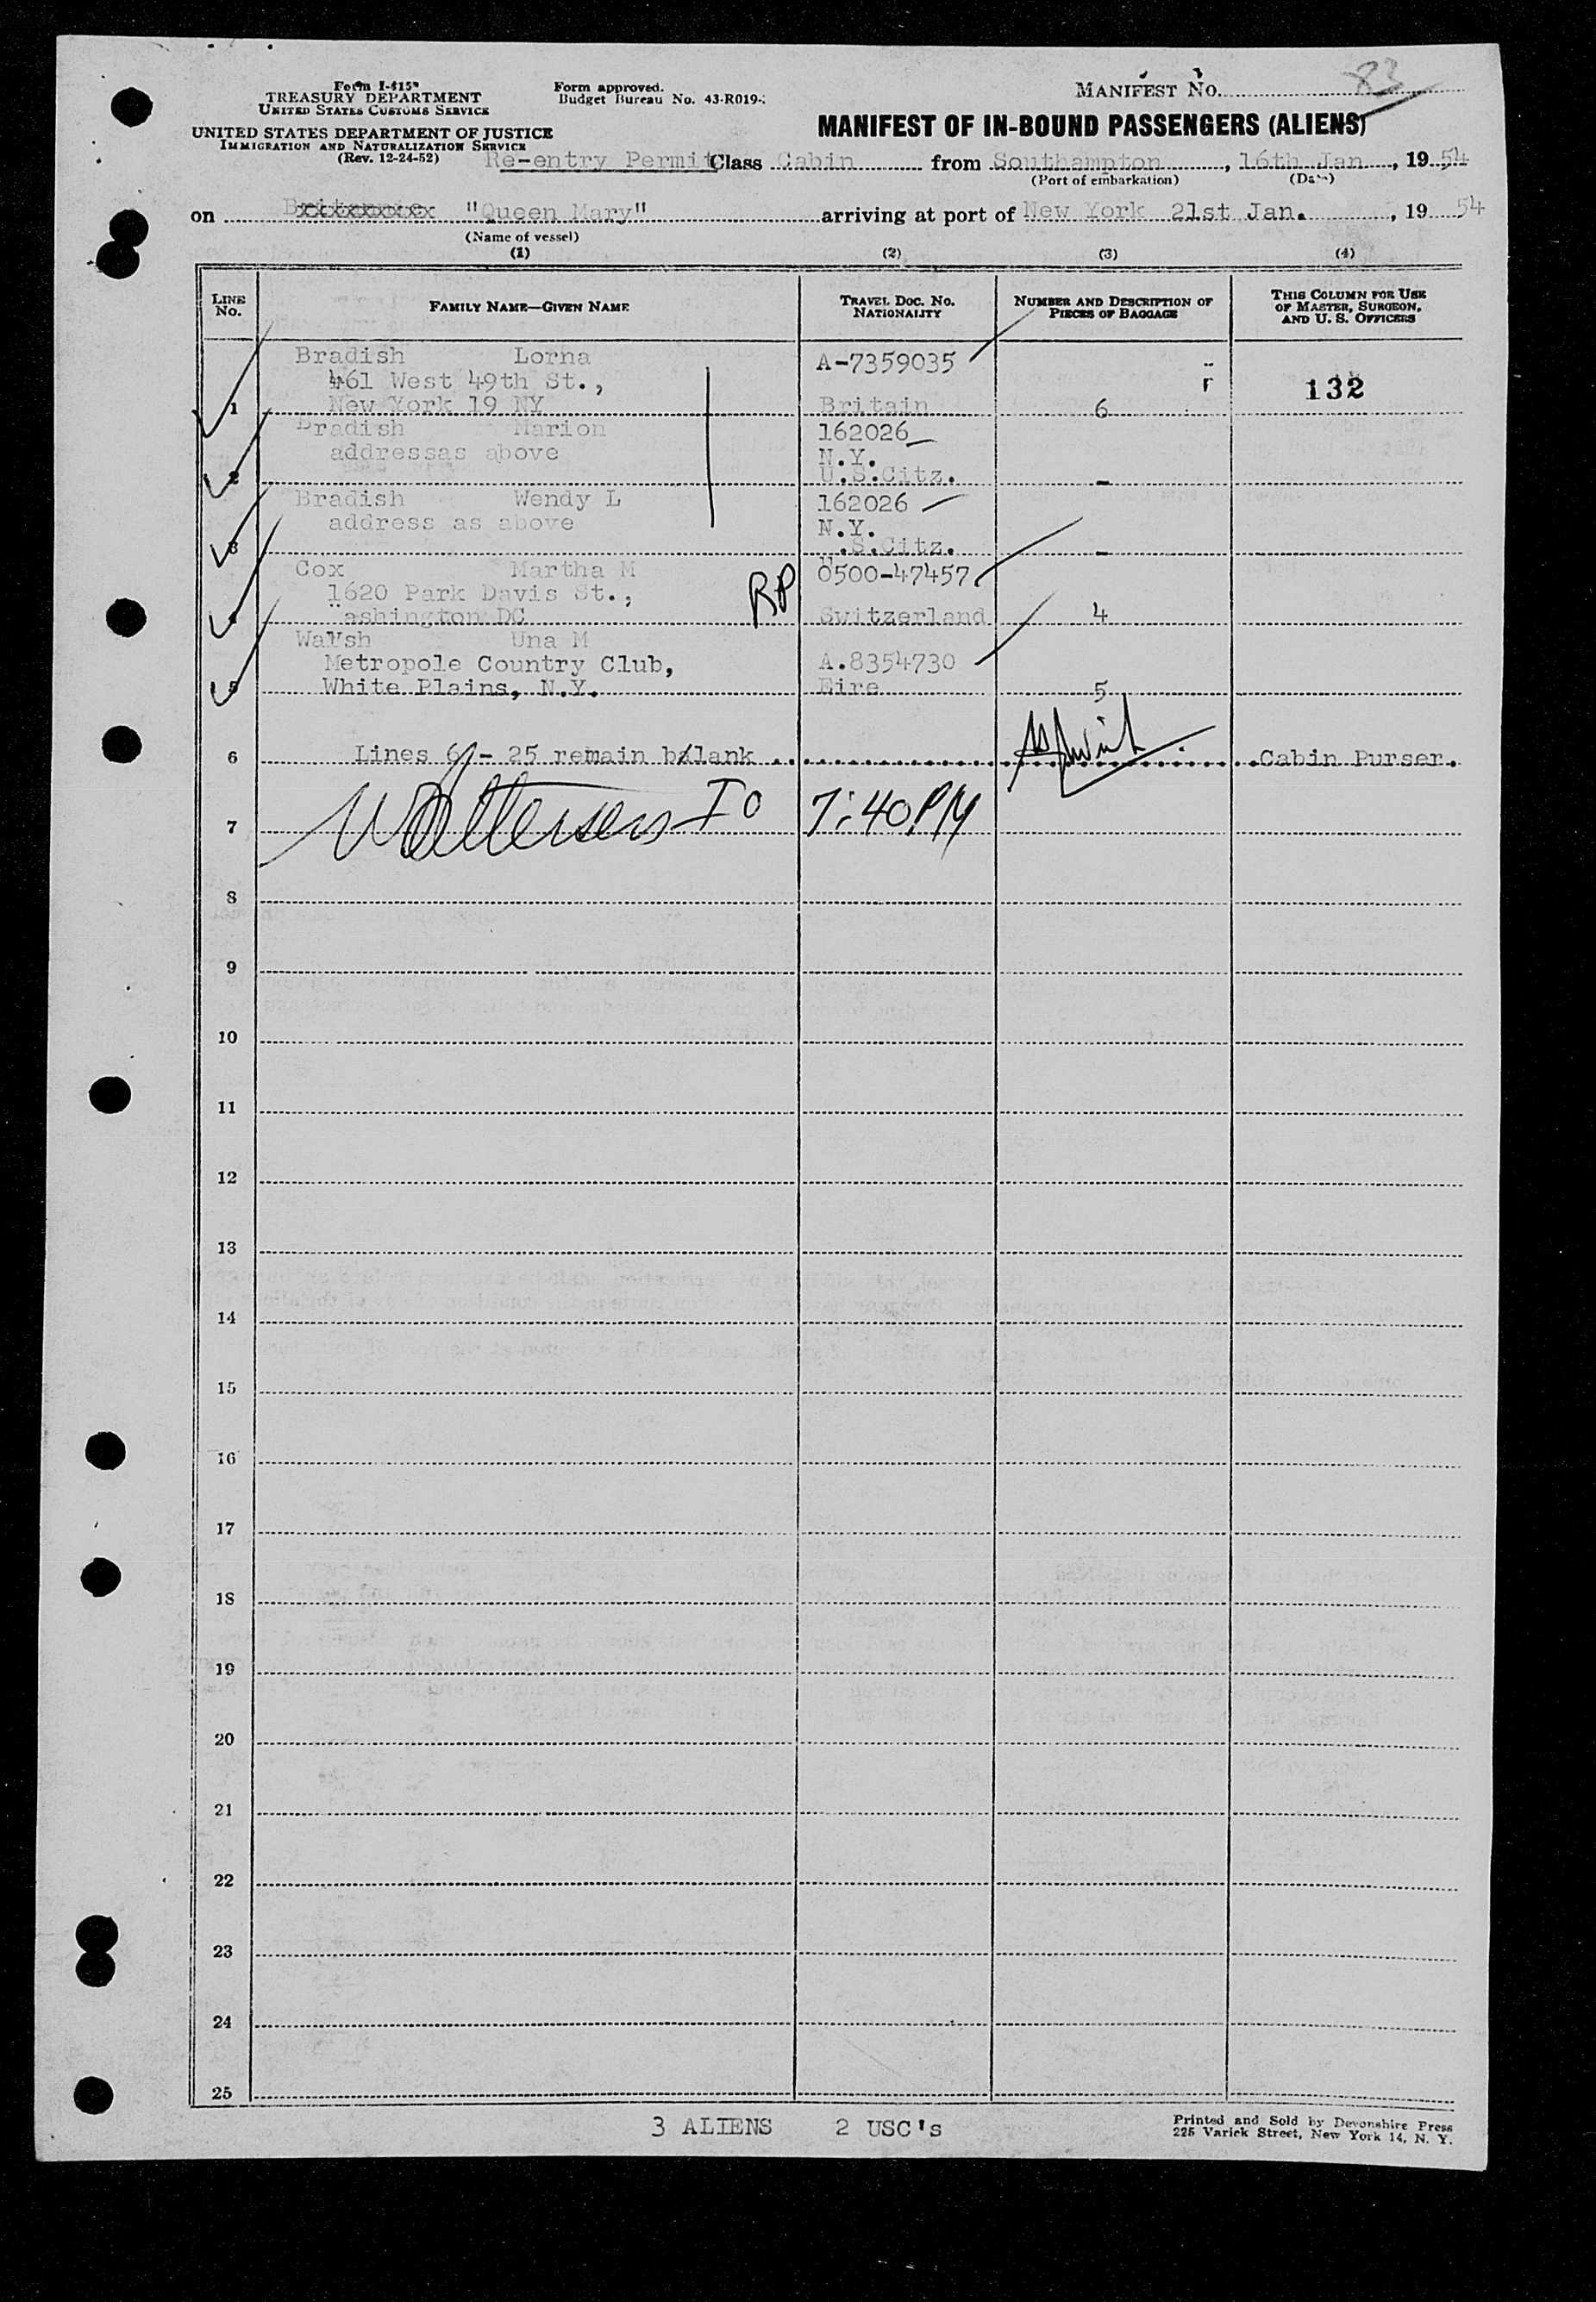 Form I-415
TREASURY DEPARTMENT
UNITED STATES CUSTOMS SERVICE
UNITED STATES DEPARTMENT OF JUSTICE
IMMIGRATION AND NATURALIZATION SERVICE
(Rev. 12-24-52)
Form approved.
Budget Bureau No. 43-R019-
MANIFEST NO. 83
MANIFEST OF IN-BOUND PASSENGERS (ALIENS)
Re-entry Permit Class Cabin from Southampton, 16th Jan, 19 54
(Port of embarkation) (Date)
on "Queen Mary" arriving at port of New York 21st Jan., 19 54
(Name of vessel)
(1) (2) (3) (4)
LINE NO.
FAMILY NAME—GIVEN NAME
TRAVEL DOC. NO. NATIONALITY
NUMBER AND DESCRIPTION OF PIECES OF BAGGAGE
THIS COLUMN FOR USE OF MASTER, SURGEON, AND U. S. OFFICERS
Bradish Lorna A-7359035
461 West 49th St., r 132
1 New York 19 NY Britain 6
Bradish Marion 162026
addressas above N.Y.
2 U.S.Citz. -
Bradish Wendy L 162026
address as above N.Y.
3 U.S.Citz. -
Cox Martha M 0500-47457
1620 Park Davis St., RP
4 Washington DC Switzerland 4
Walsh Una M
Metropole Country Club, A.8354730
5 White Plains, N.Y. Eire 5
6 Lines 6 - 25 remain balank Cabin Purser.
7 IO 7:40PM
8
9
10
11
12
13
14
15
16
17
18
19
20
21
22
23
24
25
3 ALIENS 2 USC's
Printed and Sold by Devonshire Press
225 Varick Street, New York 14, N. Y.